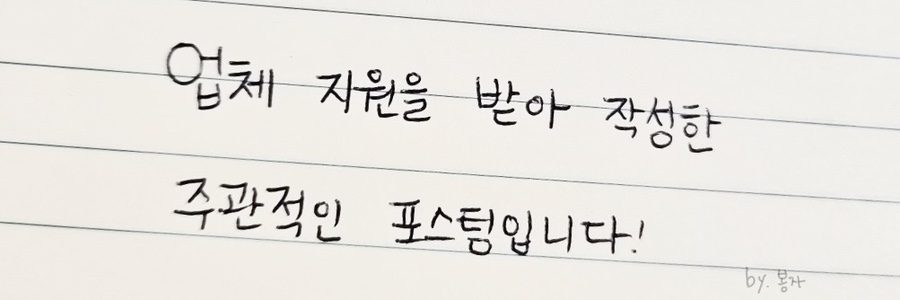 업체 지원을 받아 작성한
주관적인 포스팅입니다!
by. 봉자